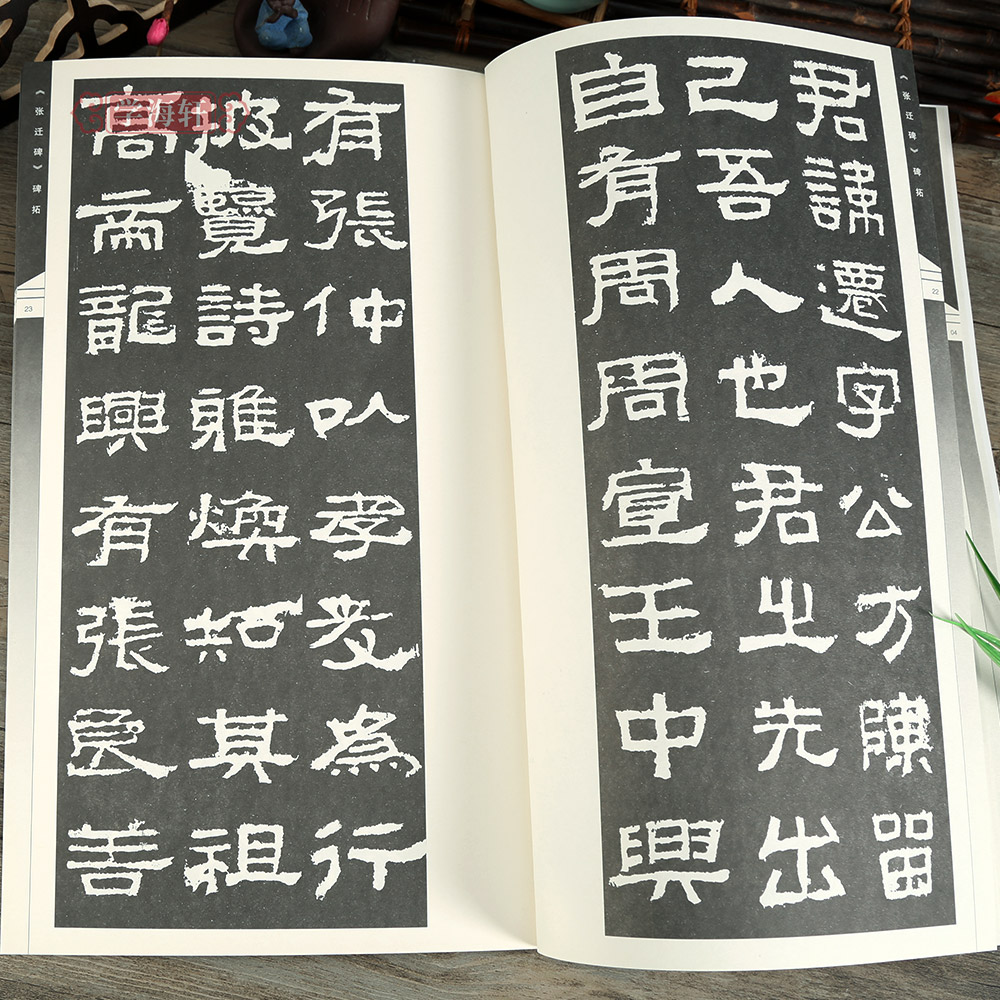 君諱遷字公方陳留
己吾人也君之先出
自有周周宣王中興
有張仲以孝友為行
披覽詩雅煥知其祖
高帝龍興有張良善
《张迁碑》碑拓
22
04
《张迁碑》碑拓
23
学海轩